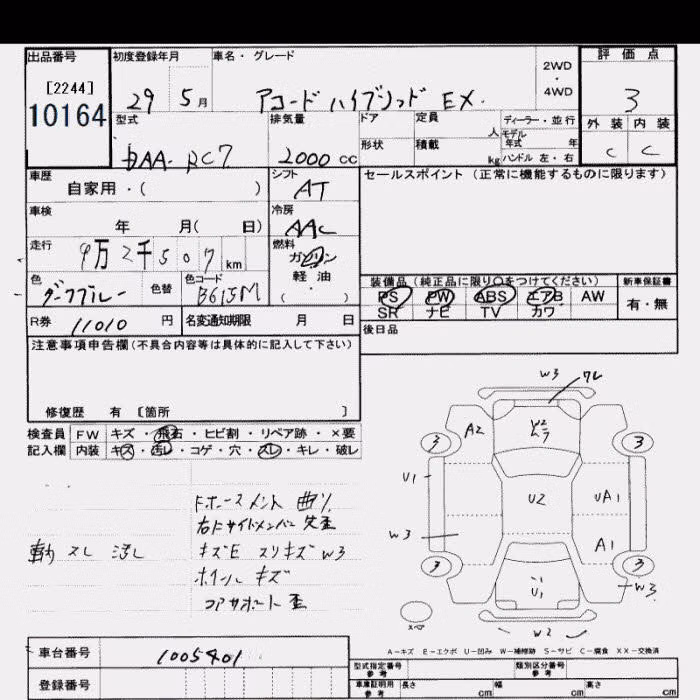 出品番号 初度登録年月 車名・グレード 2WD・4WD 評価点
[2244]
10164
29 5月 アコードハイブリッド EX. 3
型式 排気量 ドア 定員 人 ディーラー・並行 外装 内装
DAA-RC7 2000 cc 形状 積載 kg モデル年式 年 ハンドル 左・右 C C
車歴 シフト セールスポイント(正常に機能するものに限ります)
自家用・( ) AT
車検 冷房
年 月( 日) AAC
走行 燃料
9万2千507 km ガソリン
軽・油
( ・ )
色 色替 色コード 装備品(純正品に限り〇をつけてください) 新車保証書
ダークブルー B615M PS PW ABS エアB AW 有・無
SR ナビ TV カワ
R券 11010 円 名変通知期限 月 日 後日品
注意事項申告欄(不具合内容等は具体的に記入して下さい)
修復歴 有 [箇所 ]
検査員 FW キズ・飛石・ヒビ割・リペア跡・×要
記入欄 内装 キズ・汚レ・コゲ・穴・スレ・キレ・破レ
W3
A2
3 3
U1
U2 UA1
W3 A1
3 3
U1 W3
W2
スペア
Fホースメント 曲り
右Fサイドメンバー 先歪
スレ キズE スリキズ W3
ホイール キズ
コアサポート 歪
A-キズ E-エクボ U-凹み W-補修跡 S-サビ C-腐食 XX-交換済
車台番号 1005401
登録番号
型式指定番号 参考 類別区分番号 参考
車庫証明用 参考 長さ cm 幅 cm 高さ cm